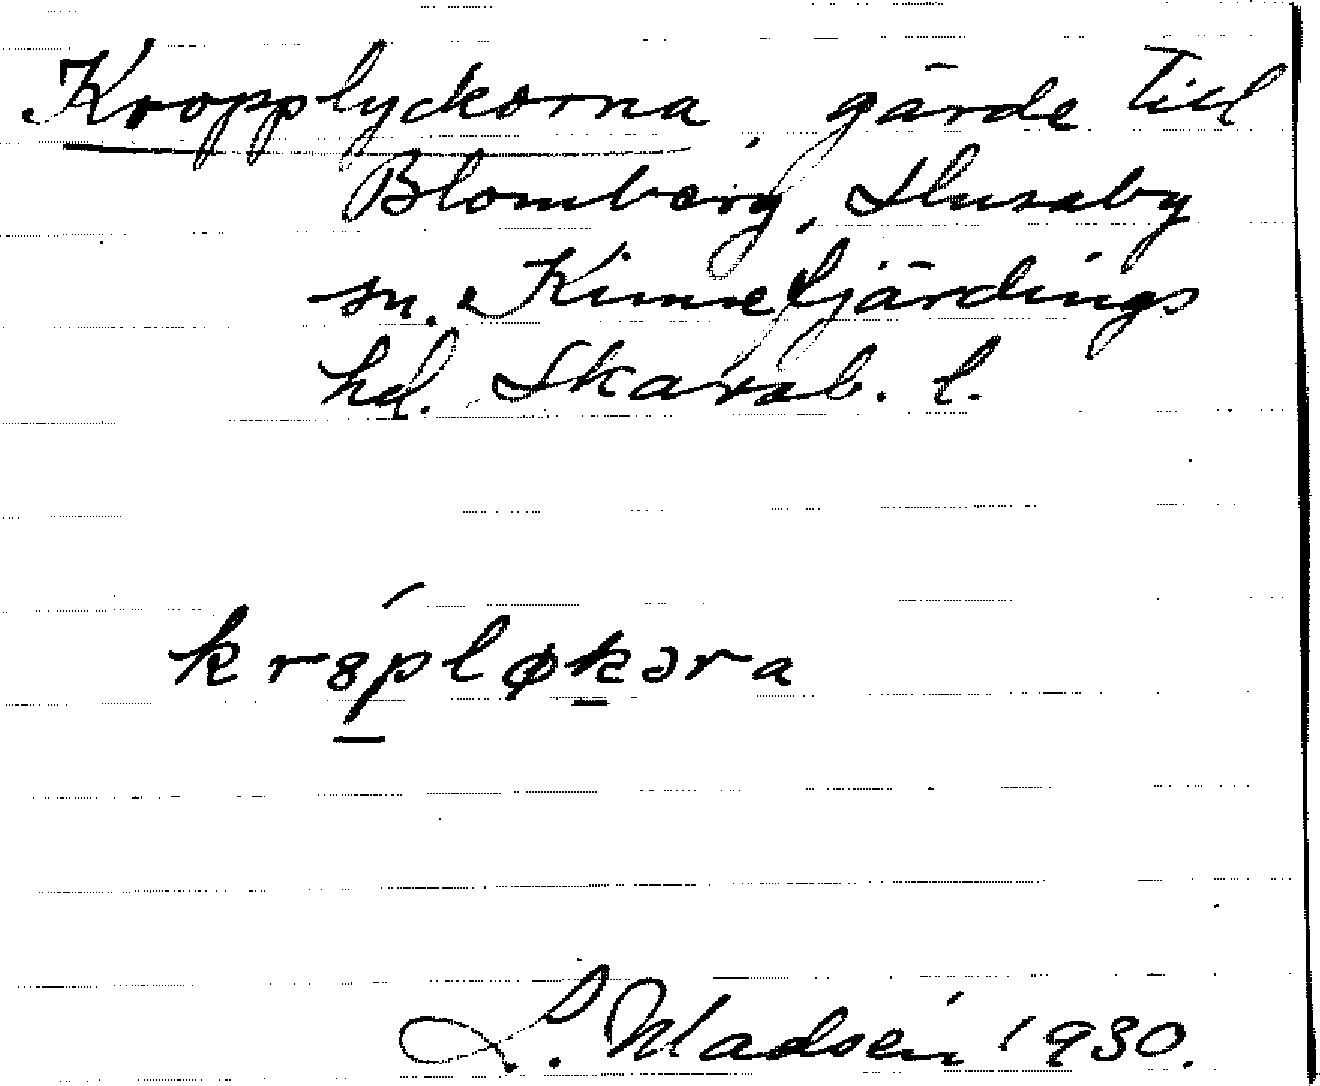 Kropplyckorna, gärde till
Blomberg, Husaby
sn. Kinnefjärdings
hd. Skarab. l.
króplø̱kəra
L. Madsén 1930.